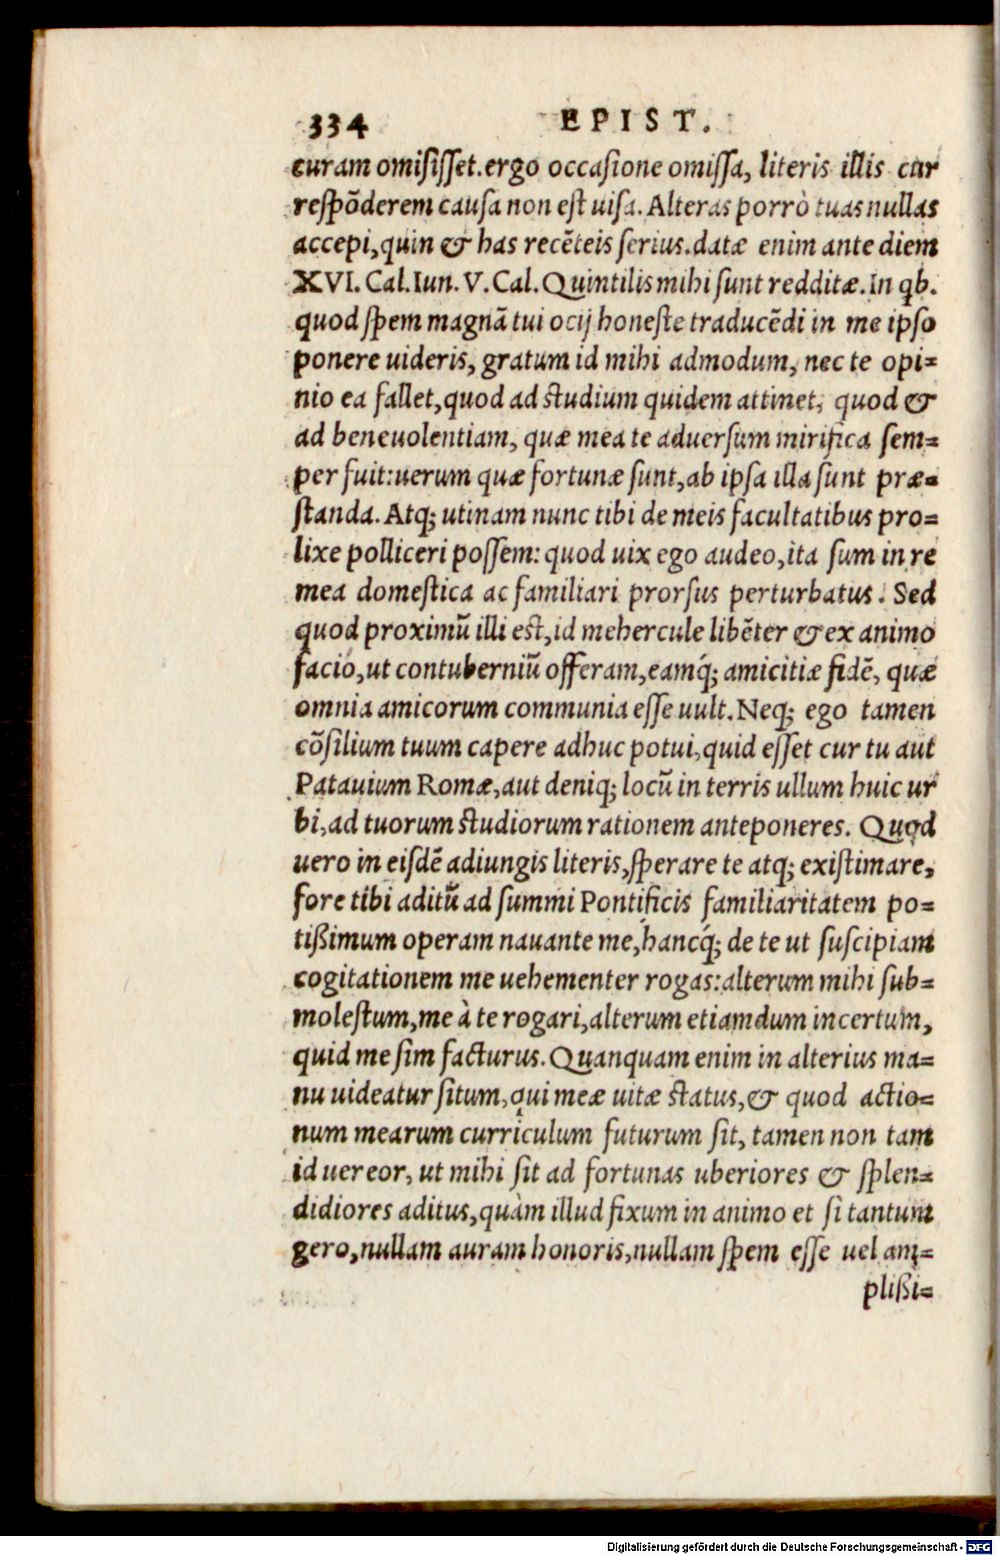 334 EPIST.
curam omisisset. ergo occasione omissa, literis illis cur
respōderem causa non est uisa. Alteras porrò tuas nullas
accepi, quin & has recēteis serius. datæ enim ante diem
XVI. Cal. Iun. V. Cal. Quintilis mihi sunt redditæ. In qb.
quod spem magnā tui ocij honeste traducēdi in me ipso
ponere uideris, gratum id mihi admodum, nec te opi=
nio ea fallet, quod ad studium quidem attinet, quod &
ad beneuolentiam, quæ mea te aduersum mirifica sem=
per fuit: uerum quæ fortunæ sunt, ab ipsa illa sunt præ=
standa. Atq; utinam nunc tibi de meis facultatibus pro=
lixe polliceri possem: quod uix ego audeo, ita sum in re
mea domestica ac familiari prorsus perturbatus. Sed
quod proximū illi est, id mehercule libēter & ex animo
facio, ut contuberniū offeram, eamq́; amicitiæ fidē, quæ
omnia amicorum communia esse uult. Neq; ego tamen
cōsilium tuum capere adhuc potui, quid esset cur tu aut
Patauium Romæ, aut deniq; locū in terris ullum huic ur
bi, ad tuorum studiorum rationem anteponeres. Quod
uero in eisdē adiungis literis, sperare te atq; existimare,
fore tibi aditū ad summi Pontificis familiaritatem po=
tißimum operam nauante me, hancq́; de te ut suscipiam
cogitationem me uehementer rogas: alterum mihi sub=
molestum, me à te rogari, alterum etiamdum incertum,
quid me sim facturus. Quanquam enim in alterius ma=
nu uideatur situm, qui meæ uitæ status, & quod actio=
num mearum curriculum futurum sit, tamen non tam
id uereor, ut mihi sit ad fortunas uberiores & splen=
didiores aditus, quàm illud fixum in animo et si tantum
gero, nullam auram honoris, nullam spem esse uel am=
plißi=
Digitalisierung gefördert durch die Deutsche Forschungsgemeinschaft - DFG